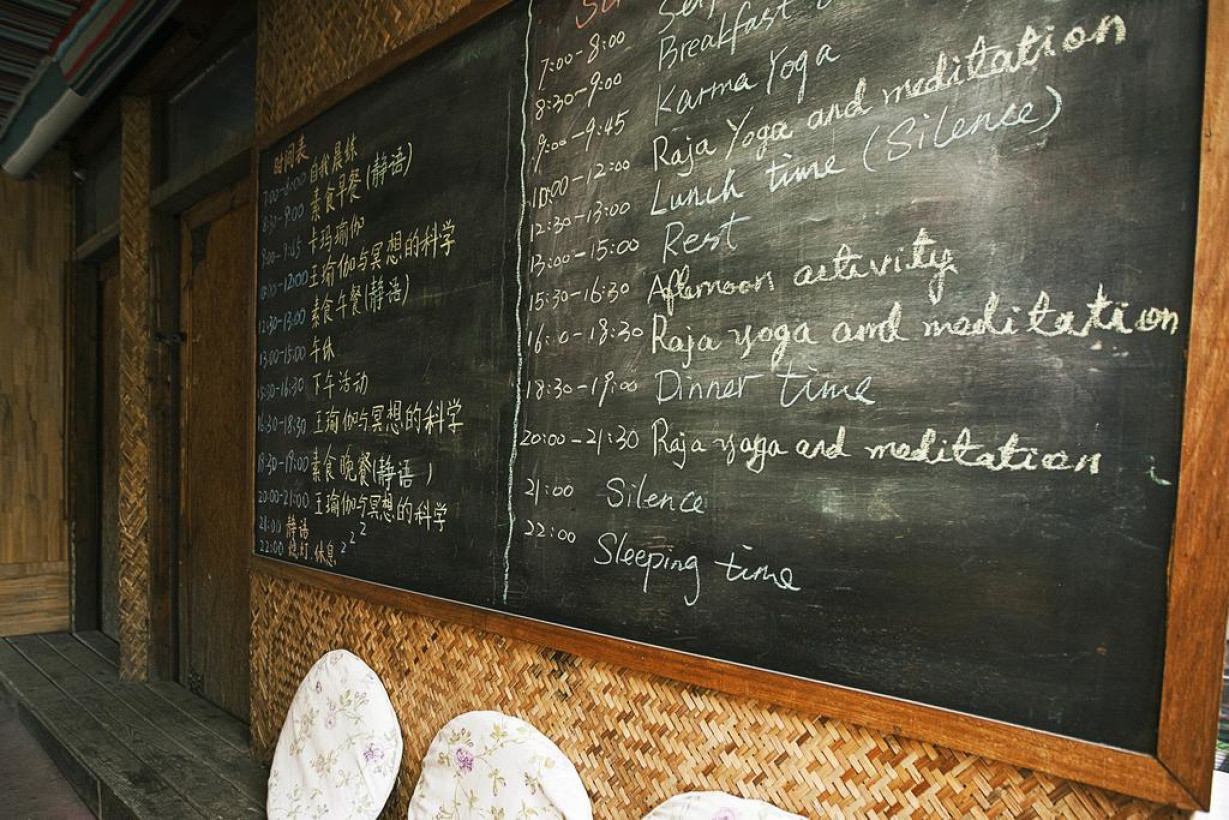 时间表
7:00-8:00 自我晨练
8:30-9:00 素食早餐(静语)
9:00-9:45 卡玛瑜伽
10:00-12:00 王瑜伽与冥想的科学
12:30-13:00 素食午餐(静语)
13:00-15:00 午休
15:30-16:30 下午活动
16:30-18:30 王瑜伽与冥想的科学
18:30-19:00 素食晚餐(静语)
20:00-21:00 王瑜伽与冥想的科学
21:00 静语
22:00 熄灯.休息 z z z
7:00-8:00
8:30-9:00 Breakfast
9:00-9:45 Karma Yoga
10:00-12:00 Raja Yoga and meditation
12:30-13:00 Lunch time (Silence)
13:00-15:00 Rest
15:30-16:30 Afternoon activity
18:30 Raja yoga and meditation
18:30-19:00 Dinner time
20:00-21:30 Raja yoga and meditation
21:00 Silence
22:00 Sleeping time